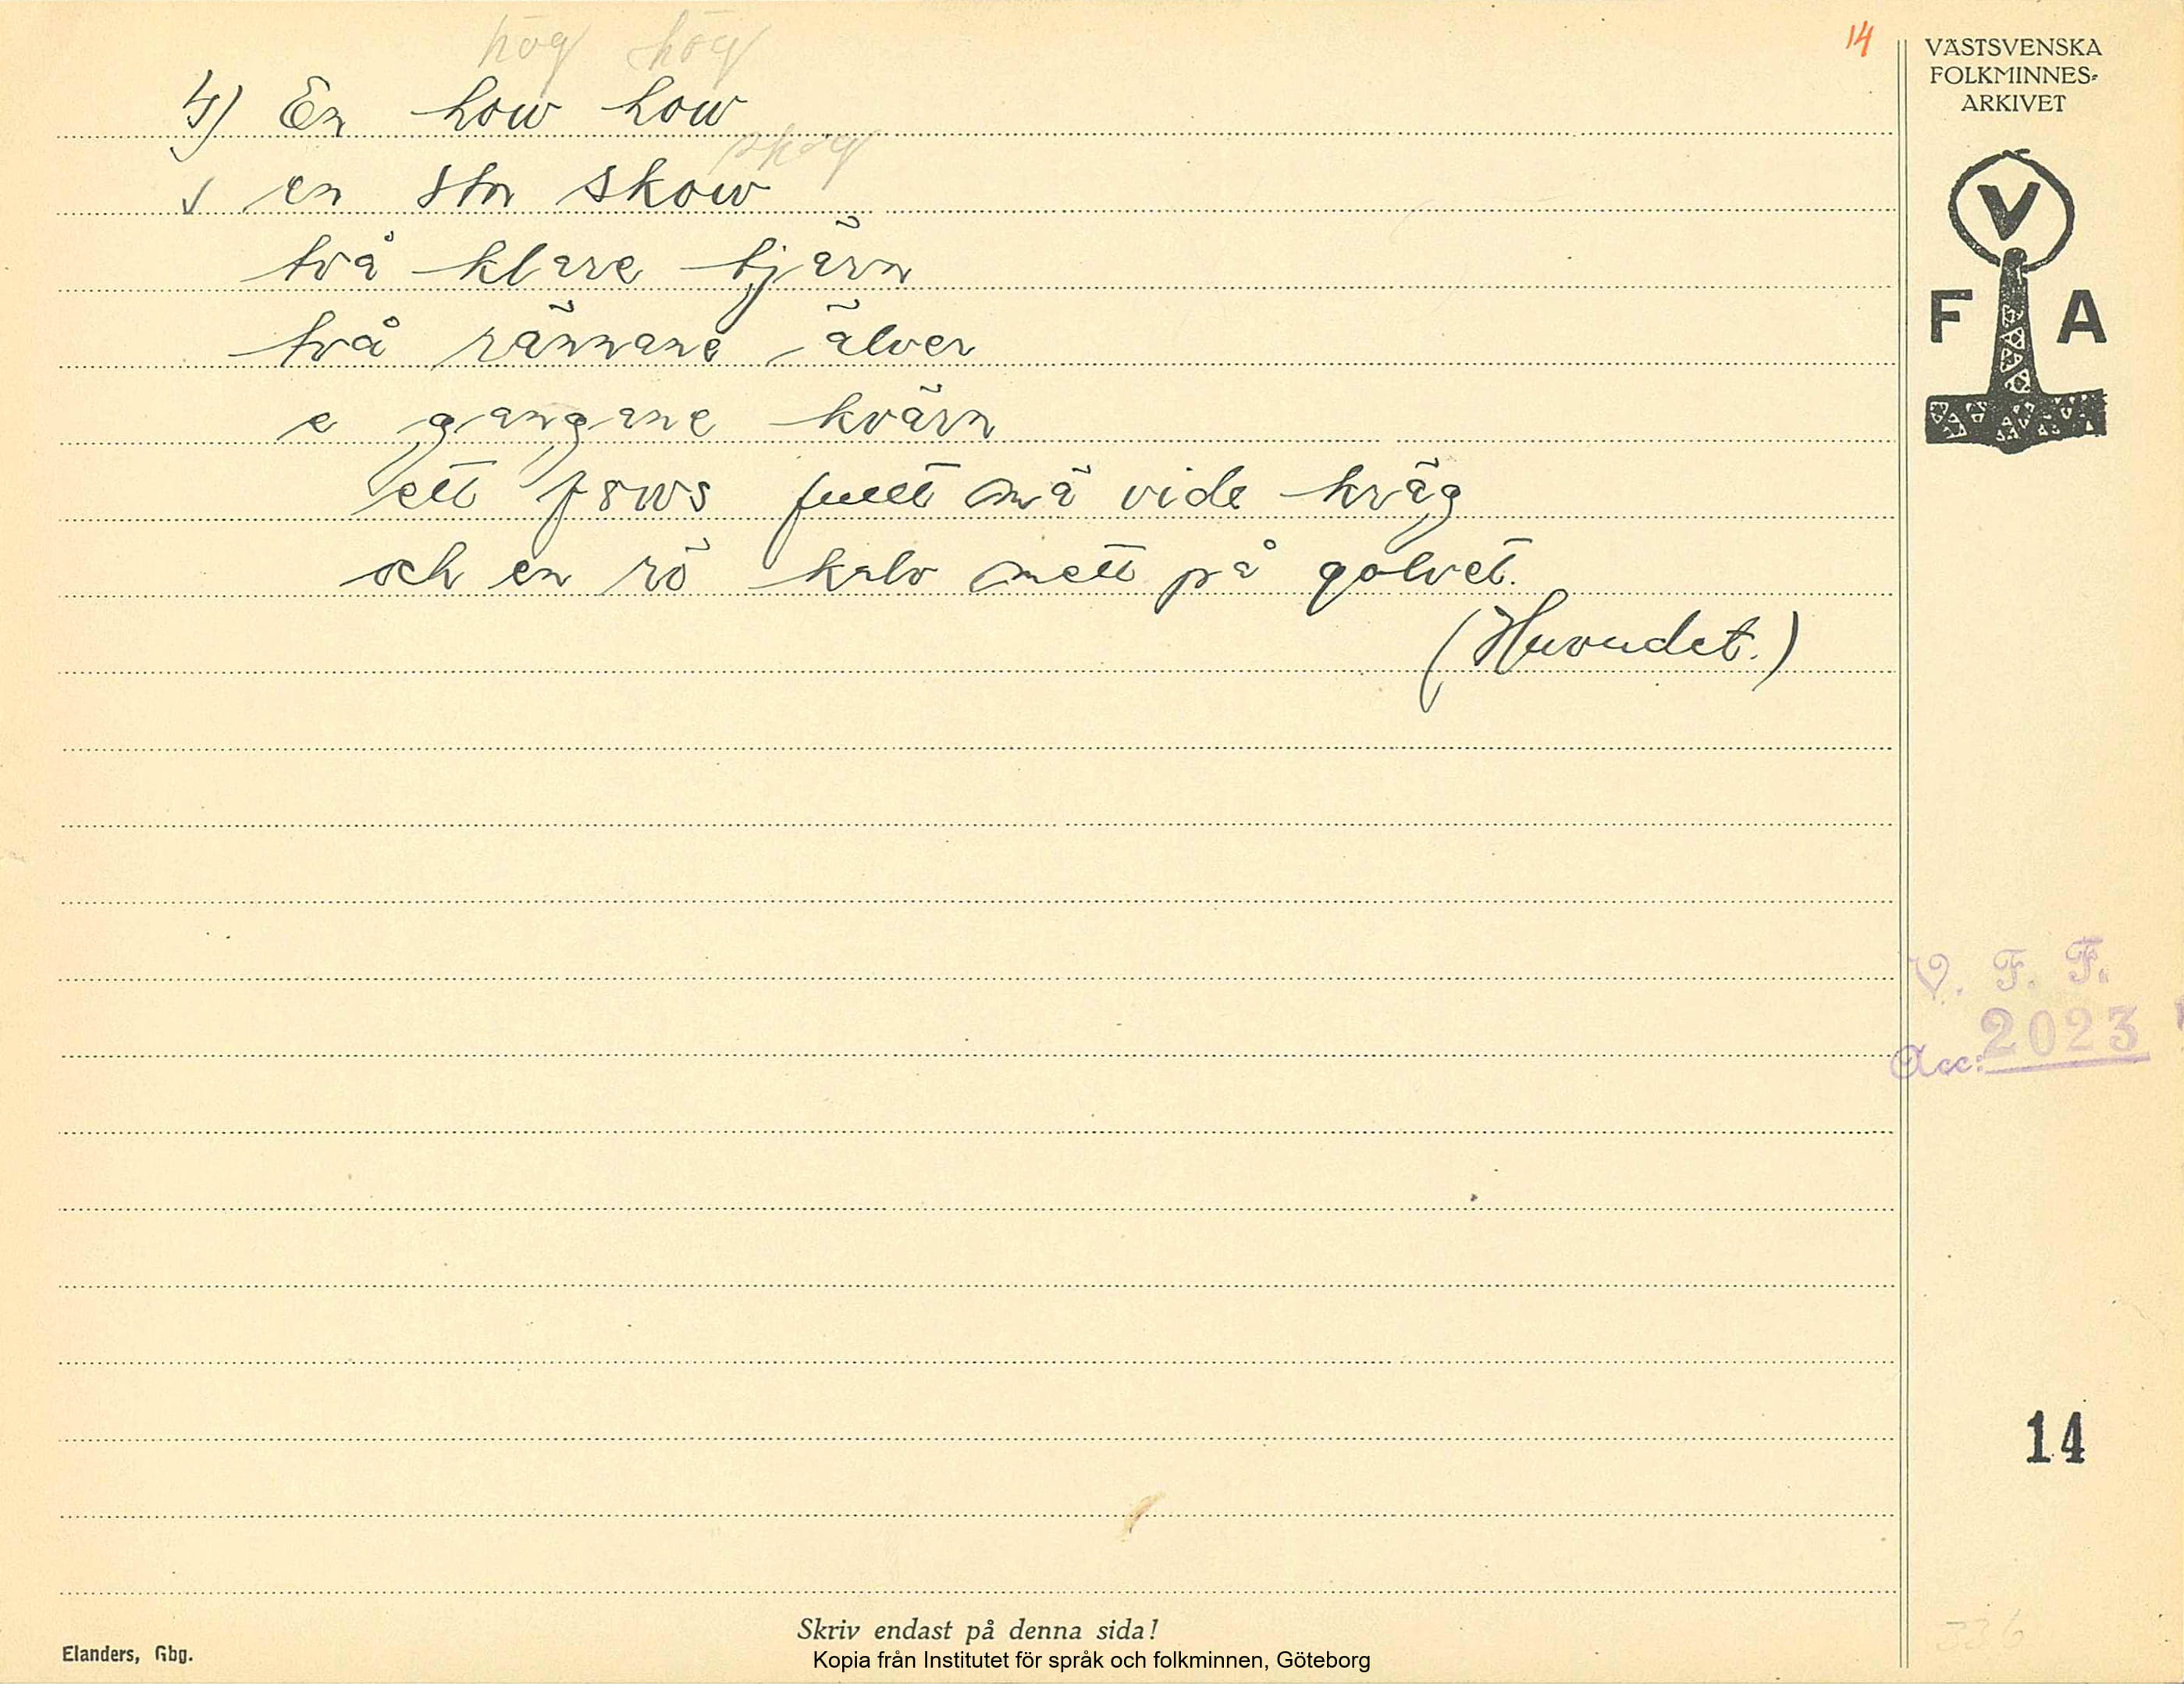 hög hög
14
4) En how how
skog
√ en stor skow
två klare tjärn
två rännane älver
e gangane kvärn
ett fows fullt mä vide kräg
och en rö kalv mett på golvet.
(Huvudet.)
VÄSTSVENSKA
FOLKMINNES-
ARKIVET
V
F A
V. F. F.
Acc: 2023
14
336
Skriv endast på denna sida!
Elanders, Gbg.
Kopia från Institutet för språk och folkminnen, Göteborg